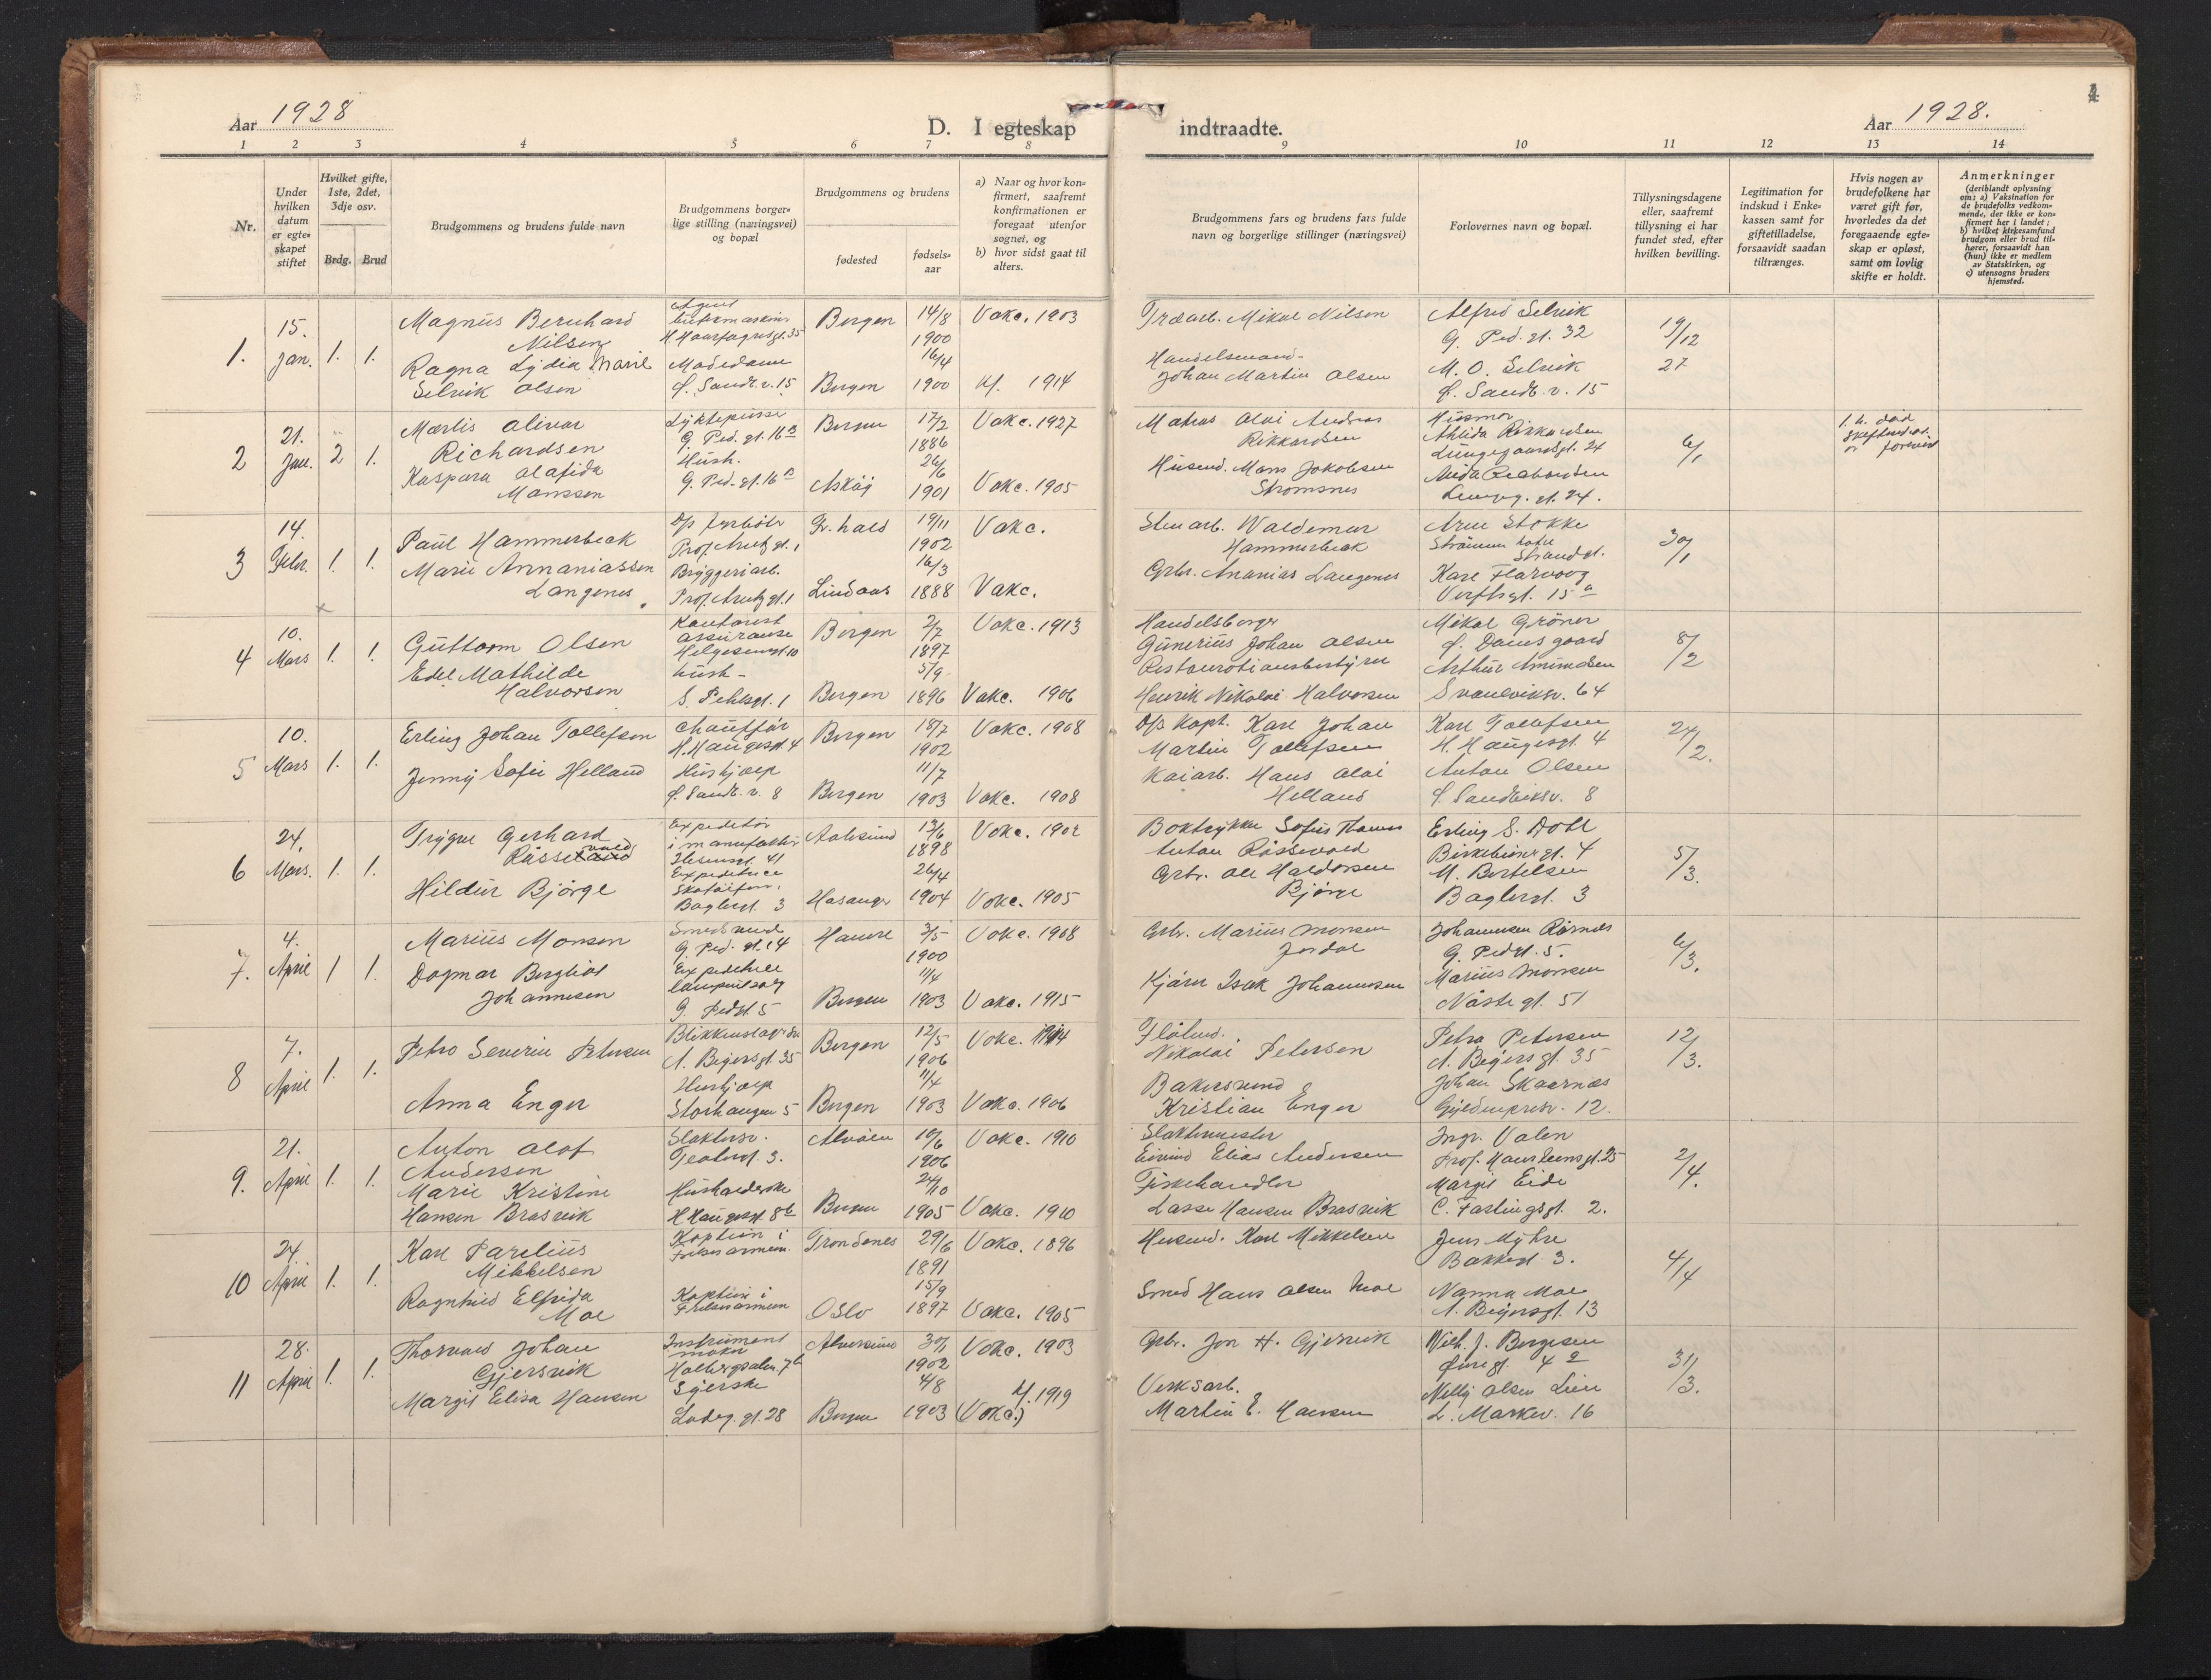 Aar 1928
D. I egteskap indtraadte.
Aar 1928.
4
1 2 3 4 5 6 7 8 9 10 11 12 13 14
Nr.
Under
hvilken
datum
er egte-
skapet
stiftet
Hvilket gifte,
1ste, 2det,
3dje osv.
Brdg. Brud
Brudgommens og brudens fulde navn
Brudgommens borger-
lige stilling (næringsvei)
og bopæl
Brudgommens og brudens
fødested
fødsels-
aar
a) Naar og hvor kon-
firmert, saafremt
konfirmationen er
foregaat utenfor
sognet, og
b) hvor sidst gaat til
alters.
Brudgommens fars og brudens fars fulde
navn og borgerlige stillinger (næringsvei)
Forlovernes navn og bopæl.
Tillysningsdagene
eller, saafremt
tillysning ei har
fundet sted, efter
hvilken bevilling.
Legitimation for
indskud i Enke-
kassen samt for
giftetilladelse,
forsaavidt saadan
tiltrænges.
Hvis nogen av
brudefolkene har
været gift før,
hvorledes da det
foregaaende egte-
skap er opløst,
samt om lovlig
skifte er holdt.
Anmerkninger
(deriblandt oplysning
om: a) Vaksination for
de brudefolks vedkom-
mende, der ikke er kon-
firmert her i landet;
b) hvilket kirkesamfund
brudgom eller brud til-
hører, forsaavidt han
(hun) ikke er medlem
av Statskirken, og
c) utensogns bruders
hjemsted.
1. 15. Jan. 1. 1.
Magnus Bernhard
Nilsen
Ragna Lydia Marie
Selvik Olsen
Agent
H. Haarfagresgt. 35
Modedame
Ø. Sandv. v. 15
Bergen 14/8 1900 Vakc. 1903
Bergen 16/4 1900 Kf. 1914
Træarb. Mikal Nilsen
Handelsmand
Johan Martin Olsen
Alfred Selvik
G. Ped. gt. 32
M. O. Selvik
Ø. Sandv. v. 15
19/12 27
2 21. Jan. 2 1.
Marlis Olivar
Richardsen
Kaspara Olafida
Manssen
Lyktepusser
G. Ped. gt. 16a
Hush.
G. Ped. gt. 16a
Bergen 17/2 1886 Vakc. 1927
Askøy 26/6 1901 Vakc. 1905
Matros Olai Andreas
Rikkardsen
Husmd. Mons Jakobsen
Strømsnes
Husmor
Lungegaardsgt. 24
Lungeg. gt. 24.
6/1
1. h. død
3 14. Febr. 1. 1.
Paul Hammerbeck
Marie Annaniassen
Langenes
D/s fyrbøter
Prof. Arentz gt. 1
Bryggeriarb.
Prof. Arentz gt. 1
Fr. hald 19/11 1902 Vakc.
Lindaas 16/3 1888 Vakc.
Stenarb. Waldemar
Hammerbeck
Grbr. Ananias Langenes
Arne Stokke
Strandgt.
Verftsgt. 15a
30/1
4 10. Mars 1. 1.
Guttorm Olsen
Edel Mathilde
Halvorsen
Kontorist
assuranse
Helgesensgt. 10
hush.
S. Pehrsgt. 1
Bergen 2/7 1897 Vakc. 1913
Bergen 5/9 1896 Vakc. 1906
Handelsborger
Gunerius Johan Olsen
Restaurationsbestyrer
Henrik Nikolai Halvorsen
Mikal Grøner
Ø. Damsgaard
Arthur Amundsen
Svaneviksv. 64
8/2
5 10. Mars 1. 1.
Erling Johan Tollefsen
Jenny Sofie Helland
Chauffør
H. Haugesgt. 4
Hushjælp
Ø. Sandv. v. 8
Bergen 18/7 1902 Vakc. 1908
Bergen 11/7 1903 Vakc. 1908
D/s Kapt. Karl Johan
Martin Tollefsen
Kaiarb. Hans Olai
Helland
Karl Tollefsen
H. Haugesgt. 4
Anton Olsen
Ø. Sandviksv. 8
24/2.
6 24. Mars. 1. 1.
Trygve Gerhard
Råssevold
Hildur Bjørge
Expeditør
i manufaktur
Ibsensgt. 41
Expeditrice
Baglergt. 3
Aalesund 13/6 1898 Vakc. 1902
Hosanger 26/4 1904 Vakc. 1905
Boktrykker Sofus Thomas
Anton Råssevold
Grbr. Ole Haldorsen
Bjørge
Erling S. Dahl
Birkebeinergt. 4
M. Bertelsen
Baglergt. 3
5/3.
7. 4. April 1 1.
Marius Monsen
Dagmar Bergliot
Johannesen
Smedsvend
G. Ped. gt. 14
Expeditrice
G. Pedgt. 5
Hamre 3/5 1900 Vakc. 1908
Bergen 11/4 1903 Vakc. 1915
Grbr. Marius Monsen
Jordal
Kjører Isak Johannesen
G. Pedgt. 5.
Marius Monsen
Nøstegt. 51
6/3.
8 7. April 1. 1.
Petro Severin Petersen
Anna Enger
A. Beyersgt. 35
Hushjælp
Storhaugen 5
Bergen 12/5 1906 Vakc. 1914
Bergen 11/4 1903 Vakc. 1906
Nikolai Petersen
Bakersvend
Kristian Enger
Petra Petersen
A. Beyersgt. 35
Johan Skaarnes
Gyldenprisv. 12.
12/3.
9. 21. April 1. 1.
Anton Olaf
Andersen
Marie Kristine
Hansen Brasvik
Slaktersv.
Teatergt. 3.
Husholderske
H Haugesgt. 8b
Alvøen 10/6 1906 Vakc. 1910
Bergen 24/10 1905 Vakc. 1910
Slaktermester
Eivind Elias Andersen
Fiskehandler
Lasse Hansen Brasvik
Ingv. Valen
Prof. Hansteensgt. 25
Margit Eide
C. Fastingsgt. 2.
2/4.
10 24. April 1. 1.
Karl Parelius
Mikkelsen
Ragnhild Elfrida
Moe
Kaptein i
Frelsesarmeen.
Kaptein i
Frelsesarmeen
Trondenes 29/6 1891 Vakc. 1896
Oslo 15/9 1897 Vakc. 1905
Husmd. Karl Mikkelsen
Smed Hans Olsen Moe
Jens Myhre
Bakkegt. 3.
Nanna Moe
A. Beyersgt. 13
4/4
11 28. April 1. 1.
Thorvald Johan
Gjersvik
Margit Elisa Hansen
Instrument
maker
Holbergsalm. 7b
Syerske
Ladeg. gt. 28
Alversund 30/1 1902 Vakc. 1903
Bergen 4/8 1903 Kf. 1919
(Vakc.)
Grbr. Jon H. Gjersvik
Verksarb.
Martin E. Hansen
Wilh. J. Bergesen
Øvregt. 4a
Nelly Olsen Lien
L. Markev. 16
31/3.